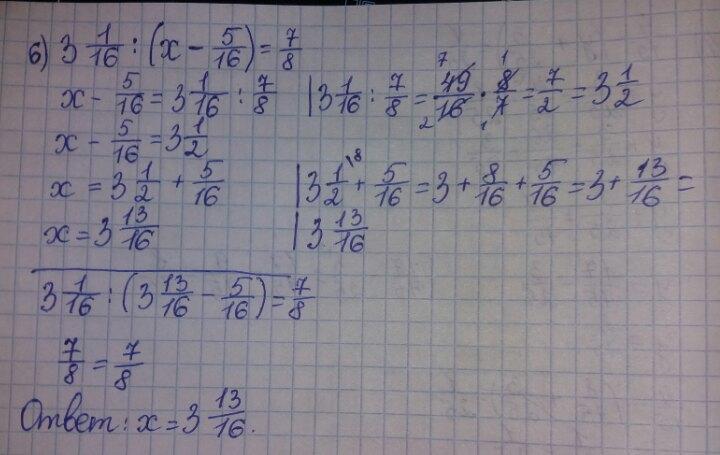 б) 3 1/16 : (x − 5/16) = 7/8
x − 5/16 = 3 1/16 : 7/8 | 3 1/16 : 7/8 = 49/16 · 8/7 = 7/2 = 3 1/2
7 1 2 1
x − 5/16 = 3 1/2
x = 3 1/2 + 5/16 | 3 1/2 \8 + 5/16 = 3 + 8/16 + 5/16 = 3 + 13/16 =
x = 3 13/16 | 3 13/16
3 1/16 : (3 13/16 − 5/16) = 7/8
7/8 = 7/8
Ответ: x = 3 13/16.